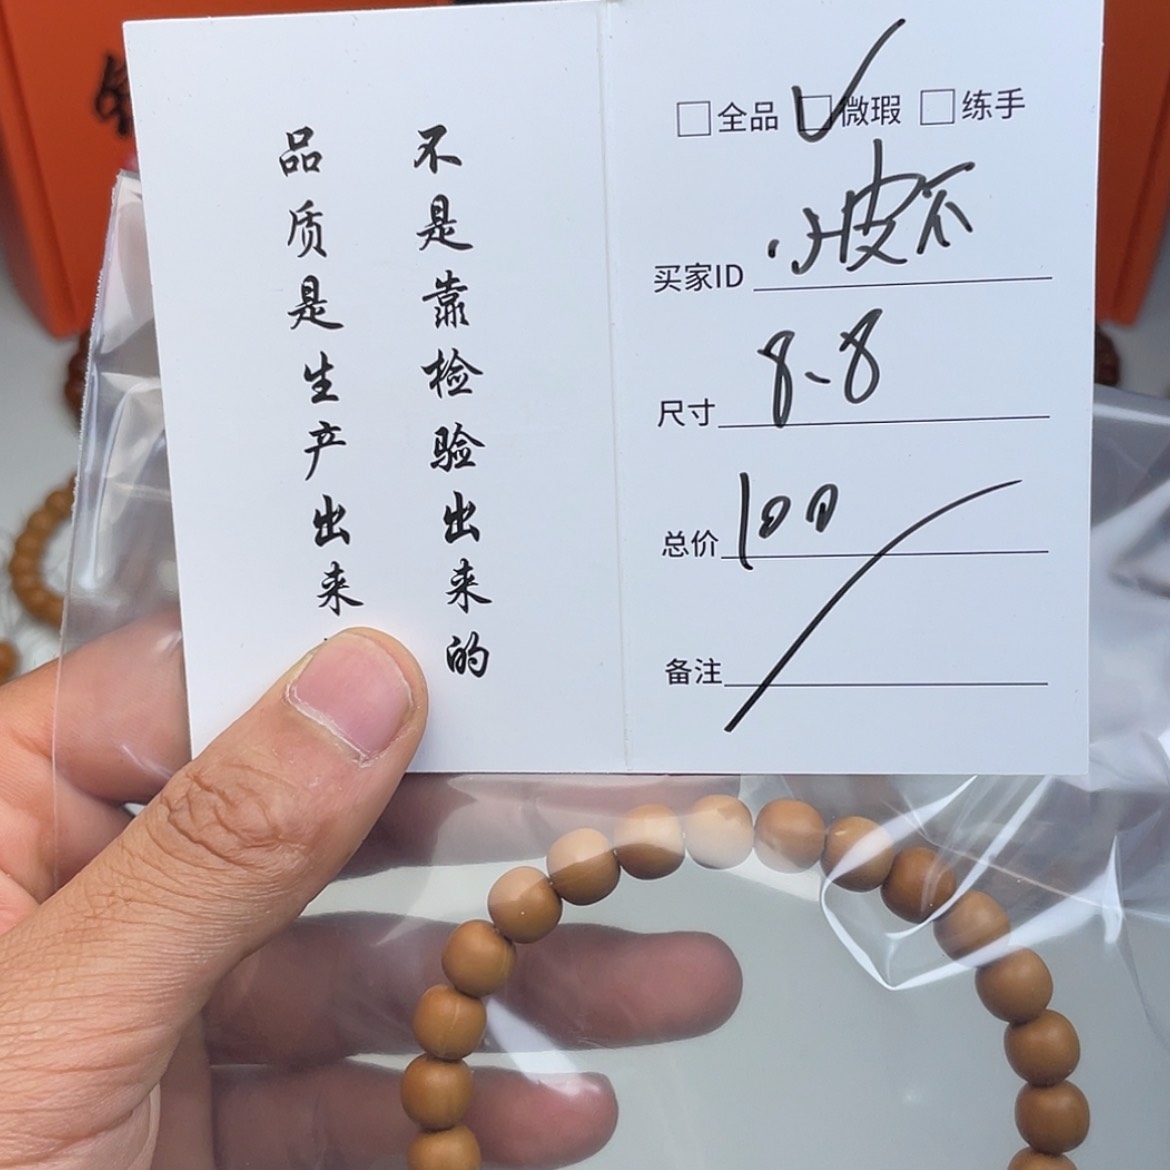 品质是生产出来
不是靠检验出来的
全品 微瑕 练手
买家ID 小皮不
尺寸 8.8
总价 100
备注